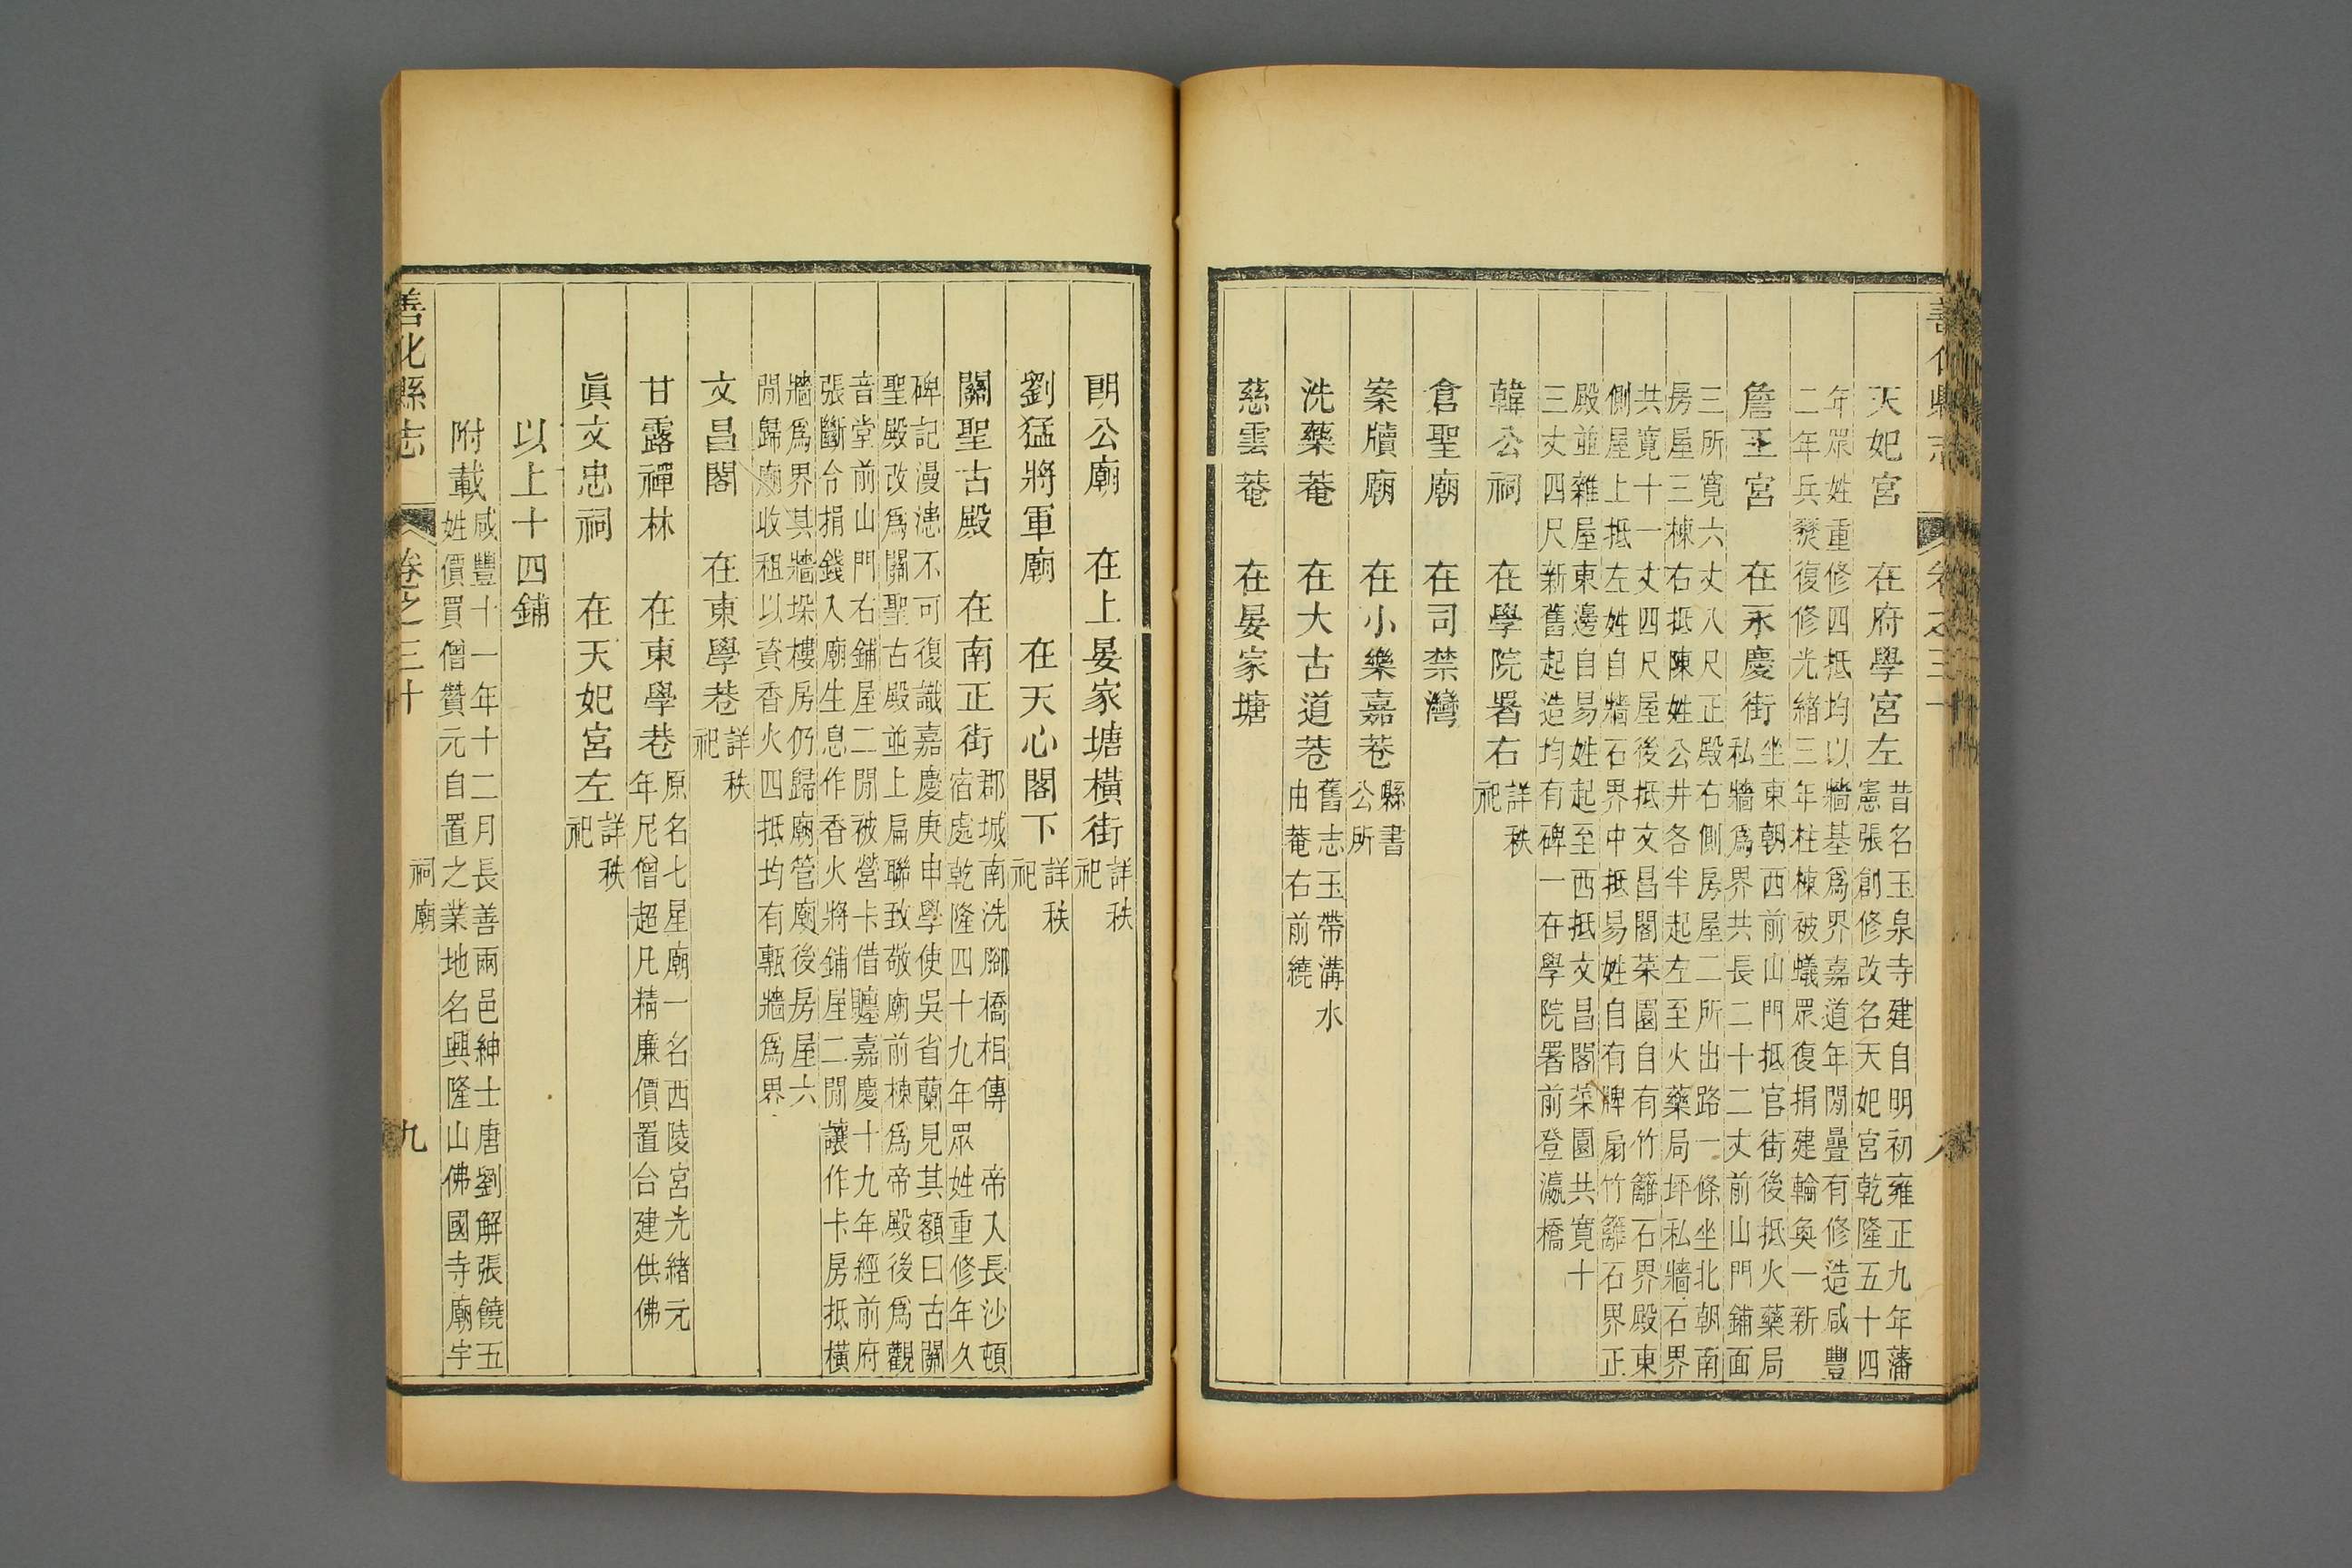 善化縣志 卷之三十
天妃宮 在府學宮左 昔名玉泉寺建自明初雍正九年藩
憲張創修改名天妃宮乾隆五十四
年眾姓重修四抵均以牆基爲界嘉道年間疊有修造咸豐
二年兵燹復修光緒三年柱棟被蟻眾復捐建輪奐一新
詹王宮 在永慶街 坐東朝西前山門抵官街後抵火藥局
私牆爲界共長二十二丈前山門鋪面
三所寬六丈八尺正殿右側房屋二所出路一條坐北朝南
房屋三棟右抵陳姓公井各半起左至火藥局坪私牆石界
共寬十一丈四尺屋後抵文昌閣菜園自有竹籬石界殿東
側屋上抵左姓自牆石界中抵易姓自有牌扇竹籬石界正
殿並雜屋東邊自易姓起至西抵文昌閣菜園共寬十
三丈四尺新舊起造均有碑一在學院署前登瀛橋
韓公祠 在學院署右 詳秩
祀
倉聖廟 在司禁灣
案牘廟 在小樂嘉巷 縣書
公所
洗藥菴 在大古道巷 舊志玉帶溝水
由菴右前繞
慈雲菴 在晏家塘
朗公廟 在上晏家塘橫街 詳秩
祀
劉猛將軍廟 在天心閣下 詳秩
祀
關聖古殿 在南正街 郡城南洗腳橋相傳 帝入長沙頓
宿處乾隆四十九年眾姓重修年久
碑記漫漶不可復識嘉慶庚申學使吳省蘭見其額曰古關
聖殿改爲關聖古殿並上扁聯致敬廟前棟爲帝殿後爲觀
音堂前山門右鋪屋二間被營卡借賍嘉慶十九年經前府
張斷令捐錢入廟生息作香火將鋪屋二間讓作卡房抵橫
牆爲界其牆垛樓房仍歸廟管廟後房屋六
間歸廟收租以資香火四抵均有甎牆爲界
文昌閣 在東學巷 詳秩
祀
甘露禪林 在東學巷 原名七星廟一名西陵宮光緒元
年尼僧超凡精廉價置合建供佛
眞文忠祠 在天妃宮左 詳秩
祀
以上十四鋪
附載 咸豐十一年十二月長善兩邑紳士唐劉解張饒五
姓價買僧贊元自置之業地名興隆山佛國寺廟宇
善化縣志 卷之三十 祠廟 九